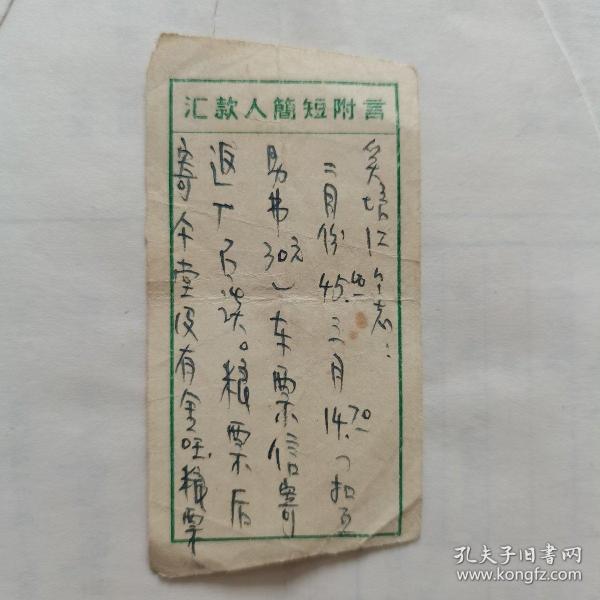 汇款人簡短附言
吴培仁仝志：
二月份45.40三月14.70（扣互
助弗30元）车票信寄
返厂石谈。粮票后
寄仐堂没有全吃粮票
孔夫子旧书网
www.kongfz.com